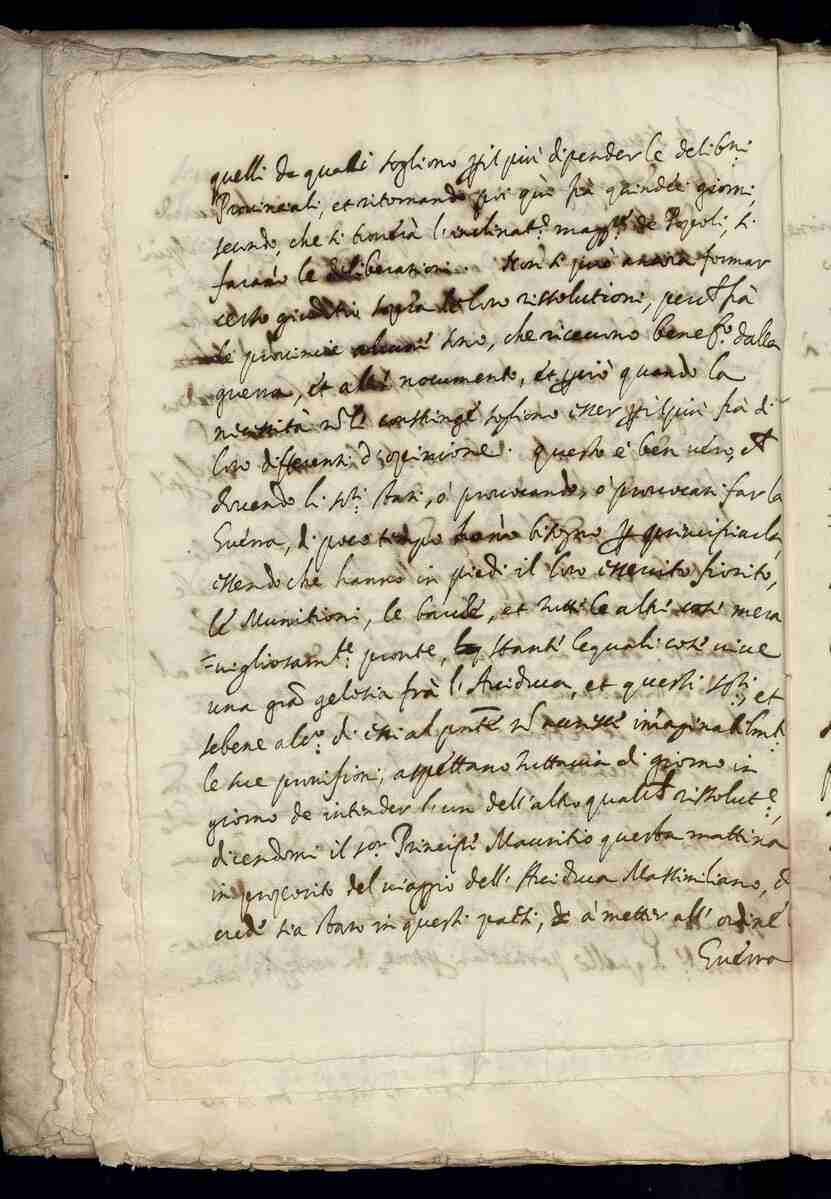 quelli da quali sogliono p il più dipender le delib.ni
Provinciali, et ritornando poi quà frà quindeci giorni,
secondo, che si troverà l'inclinat.e magg.re de Popoli, si
farano le deliberationi. Non si può ancora formar
certo giuditio sopra le loro rissolutioni, perche frà
le provincie alcune sono, che ricevono benef.o dalla
guerra, et altre nocumento, et però quando la
necessità nõ le constringe sogliono esser p il più frà di
loro differenti d'opinione. questo è ben vero, che
dovendo li s.ri stati, ò provocando, ò provocati far la
Guerra, di poco tempo hano bisogno p principiarla,
essendo che hanno in piedi il loro essercito fiorito,
le Munitioni, le barche, et tutte le altre cose mera
=vigliosam.te pronte, stante lequali cose vive
una grã gelosia frà l'Arciduca, et questi ss.ri, et
sebene alc.o di essi al pnte nõ accresce imaginabilm.te
le sue provisioni, aspettano tuttavia di giorno in
giorno de intender l'un dell'altro qualche rissolut.e,
dicendomi il s.or Principe Mauritio questa mattina
in proposito del viaggio dell'Arciduca Massimiliano, che
crede sia stato in questi paesi, à metter all'ordine
Guerra